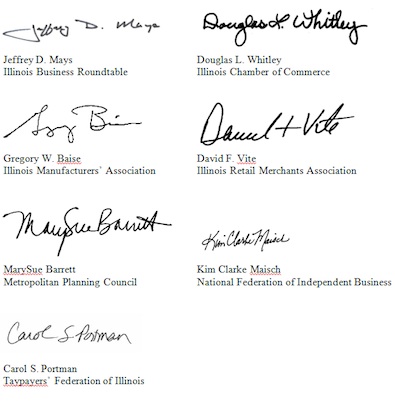 Jeffrey D. Mays Douglas L. Whitley
Jeffrey D. Mays Douglas L. Whitley
Illinois Business Roundtable Illinois Chamber of Commerce
Greg Baise David F Vite
Gregory W. Baise David F. Vite
Illinois Manufacturers' Association Illinois Retail Merchants Association
MarySue Barrett Kim Clarke Maisch
MarySue Barrett Kim Clarke Maisch
Metropolitan Planning Council National Federation of Independent Business
Carol S Portman
Carol S. Portman
Taypayers' Federation of Illinois